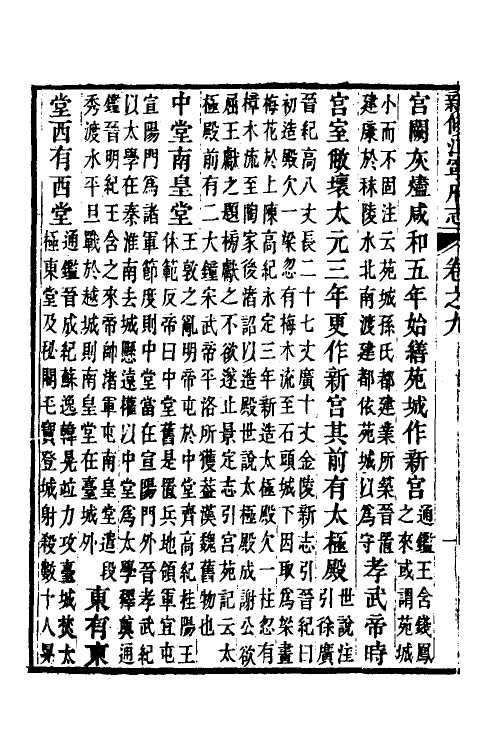 新修江寧府志 卷之九
宮闕灰燼咸和五年始繕苑城作新宮
通鑑王含錢鳳
之來或謂苑城
小而不固注云苑城孫氏都建業所築晉置
建康於秣陵水北南渡建都依苑城以爲守
孝武帝時
宮室敝壞太元三年更作新宮其前有太極殿
世說注
引徐廣
晉紀高八丈長二十七丈廣十丈金陵新志引晉紀曰
初造殿欠一梁忽有梅木流至石頭城下因取爲梁畫
梅花於上陳高紀永定三年新造太極殿欠一柱忽有
樟木流至陶家後渚詔以造殿世說太極殿成謝公欲
屈王獻之題榜獻之不欲遂止景定志引宮苑記云太
極殿前有二大鐘宋武帝平洛所獲葢漢魏舊物也
中堂南皇堂
王敦之亂明帝屯於中堂齊高紀桂陽王
休範反帝曰中堂舊是置兵地領軍宜屯
宣陽門爲諸軍節度則中堂當在宣陽門外晉孝武紀
以太學在秦淮南去城懸遠權以中堂爲太學釋奠通
鑑晉明紀王含之來帝帥諸軍屯南皇堂遣段
秀渡水平旦戰於越城則南皇堂在臺城外
東有東
堂西有西堂
通鑑晉成紀蘇逸韓晃竝力攻臺城焚太
極東堂及秘閣毛寶登城射殺數十人晃